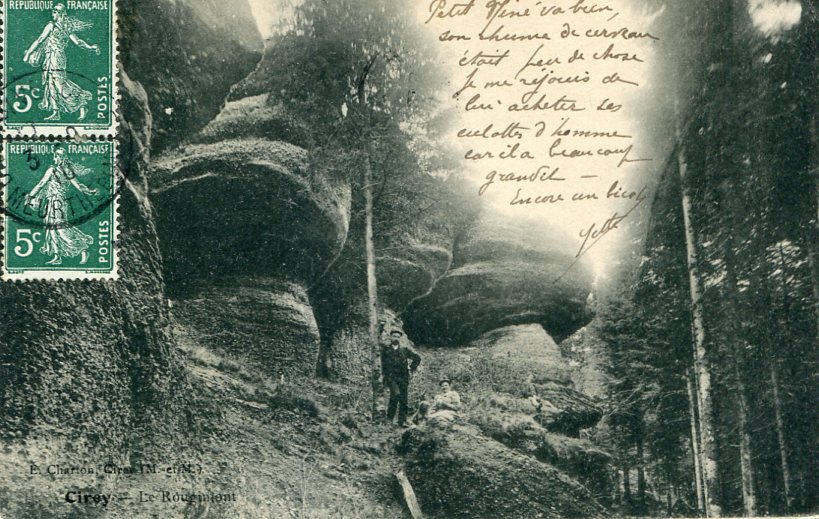 REPUBLIQUE FRANÇAISE
5c POSTES
REPUBLIQUE FRANÇAISE
5c POSTES
Petit Néné va bien,
son rhume de cerveau
était peu de chose
Je me réjouis de
lui acheter ses
culottes d'homme
car il a beaucoup
grandi —
Encore un bicot
Yette
E. Charton, Cirey (M.-et-M.)
Cirey — Le Rougimont